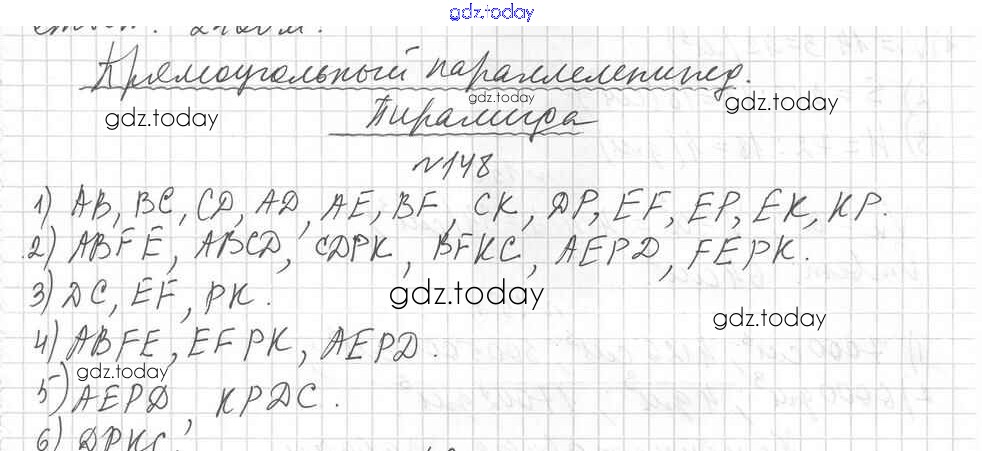 gdz.today
Прямоугольный параллелепипед.
gdz.today
gdz.today
Пирамида
gdz.today
№148
1) AB, BC, CD, AD, AE, BF, CK, DP, EF, EP, EK, KP.
2) ABFE, ABCD, CDPK, BFKC, AEPD, FEPK.
3) DC, EF, PK.
gdz.today
gdz.today
4) ABFE, EFPK, AEPD.
gdz.today
5) AEPD, KPDC.
6) DPKC,